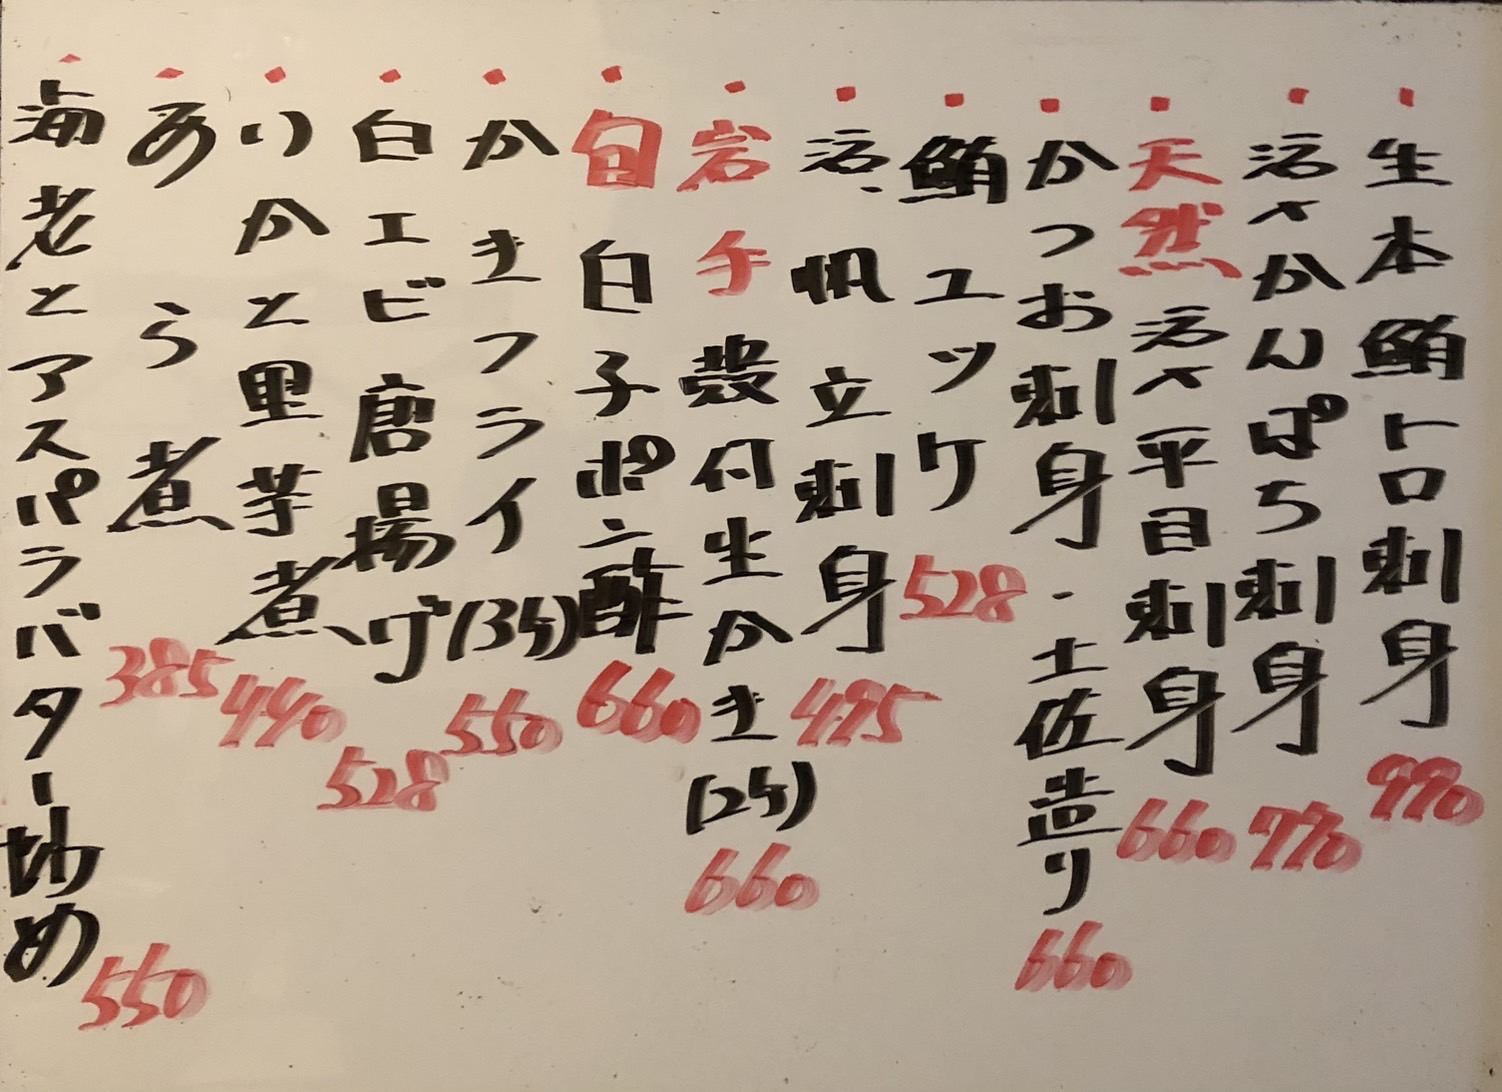 ・生本鮪トロ刺身 990
・活〆かんぱち刺身 770
・天然活〆平目刺身 660
・かつお刺身・土佐造り 660
・鮪ユッケ 528
・活、帆立刺身 495
・岩手殻付生かき(2ケ) 660
・旬白子ポン酢 660
・かきフライ(3ケ) 550
・白エビ唐揚げ 528
・いかと里芋煮 440
・あら煮 385
・海老とアスパラバター炒め 550